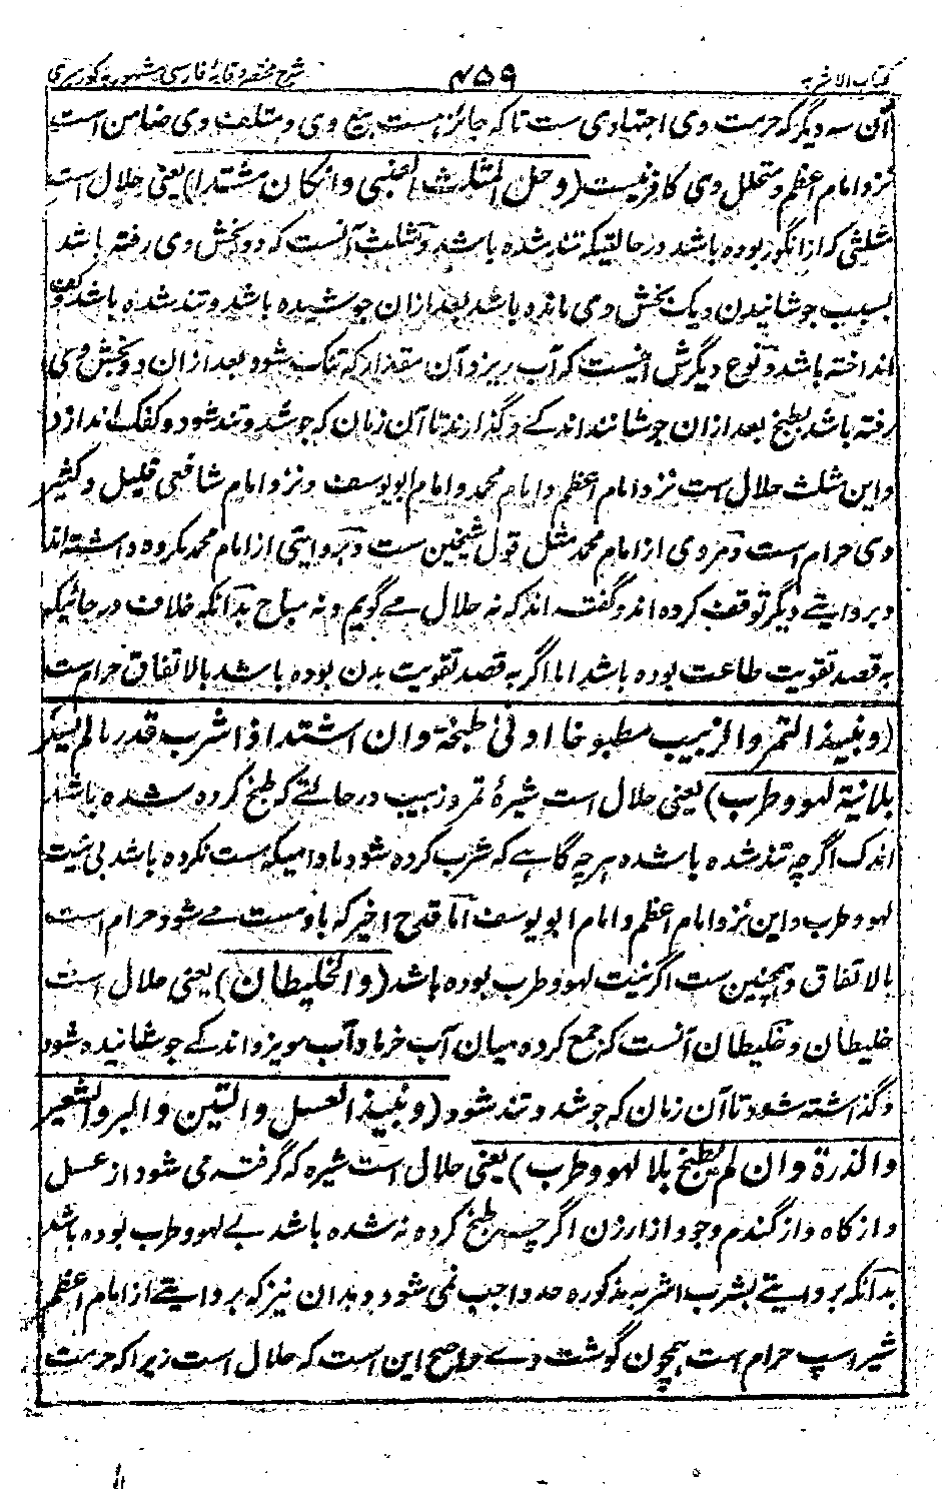 کتاب الاشربه ۴۵۹ شرح مختصر وقایهٔ فارسی مشهور به کورسری
آن سه دیگر که حرمت وی اجتهادی ست تا که جائز است بیع وی و متلف وی ضامن است
نزد امام اعظم و متحلل وی کافر نیست (وحل المثلث العنبی وان کان مشتدا) یعنی حلال است
مثلثی که از انگور بوده باشد در حالتیکه تند شده باشد و مثلث آنست که دو بخش وی رفته باشد
بسبب جوشانیدن و یک بخش وی مانده باشد بعد ازان جوشیده باشد و تند شده باشد و کف
انداخته باشد و نوع دیگرش اینست که آب ریزد آن مقدار که تنک شود بعد ازان دو بخش وی
رفته باشد بطبخ بعد ازان جوشانند اندکے و گذارند تا آن زمان که جوشد و تند شود و کفک اندازد
و این مثلث حلال ست نزد امام اعظم و امام محمد و امام ابو یوسف و نزد امام شافعی قلیل و کثیر
وی حرام است و مروی از امام محمد مثل قول شیخین ست و بروایتی از امام محمد مکروه داشته اند
و بروایتے دیگر توقف کرده اند و گفته اند که نه حلال مے گویم و نه مباح بدانکه خلاف در جائیکه
به قصد تقویت طاعت بوده باشد اما اگر به قصد تقویت بدن بوده باشد بالاتفاق حرام ست
(ونبیذ التمر والزبیب مطبوخا ادنی طبخة وان اشتد اذا شرب قدر ما لم یسکر
بلا نیة لهو وطرب) یعنی حلال است شیرهٔ تمر و زبیب در حالتے که طبخ کرده شده باشد
اندک اگرچه تند شده باشد هرچه گاہے که شرب کرده شود مادامیکه مست نکرده باشد بی نیت
لهو و طرب و این نزد امام اعظم و امام ابو یوسف اما قدح اخیر که باو مست مے شود حرام است
بالاتفاق و همچنین ست اگر نیت لهو و طرب بوده باشد (والخلیطان) یعنی حلال است
خلیطان و خلیطان آنست که جمع کرده میان آب خرما و آب مویز و اندکے جوشانیده شود
و گذاشته شود تا آن زمان که جوشد و تند شود (ونبیذ العسل والتین والبر والشعیر
والذرة وان لم یطبخ بلا لهو وطرب) یعنی حلال است شیره که گرفته می شود از عسل
و از کاه و از گندم و جو و از ارزن اگرچه طبخ کرده نه شده باشد بے لهو و طرب بوده باشد
بدانکه بروایتے بشرب اشربه مذکوره حد واجب نمی شود و بدان نیز که بروایتے از امام اعظم
شیر اسپ حرام است همچون گوشت وے و اصح این است که حلال است زیرا که حرمت